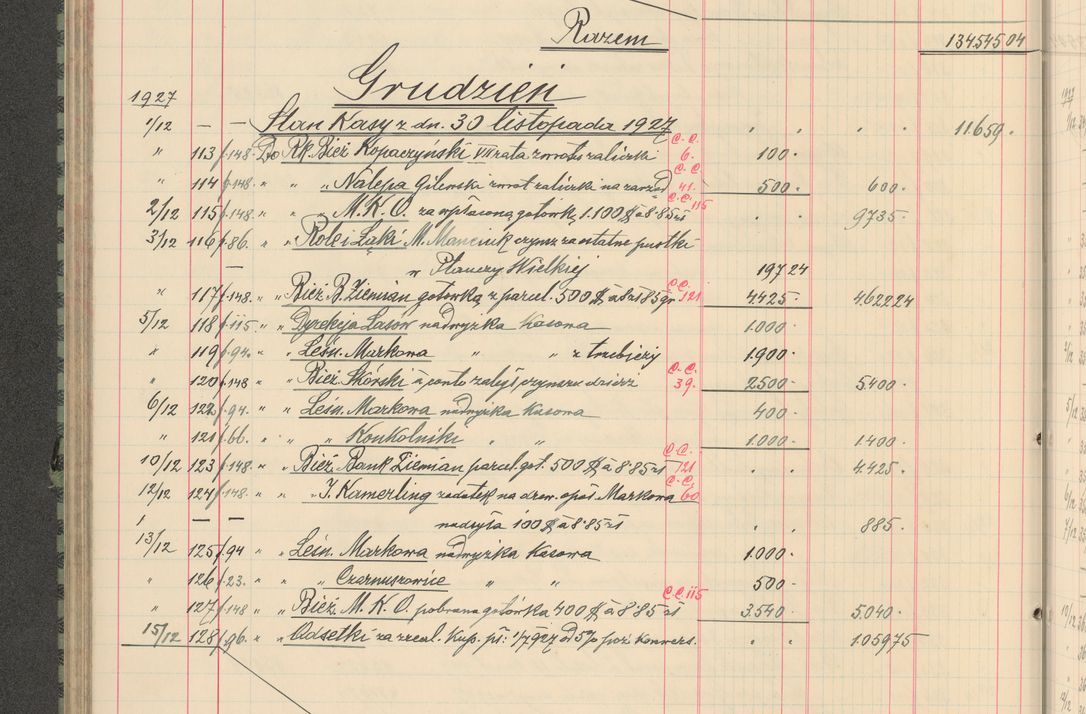 Razem 134545 04
Grudzień
1927
1/12 — — Stan Kasy z dn. 30 listopada 1927 . . . . 11.659 .
" 113 f. 148. Do Rk. Bież Kopaczyński VII rata zwrotu zaliczki C.C. 6. 100 .
" 114 f. 148. " " " Nalepa Gileński zwrot zaliczki na zarząd C.C. 41. 500 . 600 .
2/12 115 f. 148. " " " M.K.O. za wpłaconą gotówk. 1.100 $ à 8.85 zł C.C. 115 . . 9735 .
3/12 116 f. 86. " " Role i Łąki M. Manciuk czynsz za ostatnie pustki
— w Płauczy Wielkiej 197 24
" 117 f. 148. " " Bież. B. Ziemian gotówką z parcel. 500 $ à 8 zł 85 gr. C.C. 121 4.425 . 4622 24
5/12 118 f. 115. " " Dyrekcja Lasów nadwyżka Kasowa 1.000 .
" 119 f. 94. " " Leśn. Markowa " " z trzebieży 1.900 .
" 120 f. 148 " " Bież Skórski à conto czynszu dzierż C.C. 39. 2500 . 5.400 .
6/12 122 f. 94. " " Leśn. Markowa nadwyżka Kasowa 400 .
" 121 f. 66. " " " Konkolniki " " 1.000 . 1400 .
10/12 123 f. 148. " " Bież. Bank Ziemian parcel. got. 500 $ à 8.85 zł C.C. 121 . . 4.425 .
12/12 124 f. 148. " " " J. Kamerling zadatek na drzew. opał. Markowa C.C. 60
— — 100 $ à 8.85 zł . . 885 .
13/12 125 f. 94 " " Leśn. Markowa nadwyżka Kasowa 1.000 .
" 126 f. 23. " " " Czarnuszowice " " 500 .
" 127 f. 148 " " Bież. M.K.O. pobrana gotówka 400 $ à 8.85 zł C.C. 115 3.540 . 5.040 .
15/12 128 f. 96. " " Odsetki za zreal. Kup. pł: 1/7 927 od 5% poż konwers. . . 1.059 75